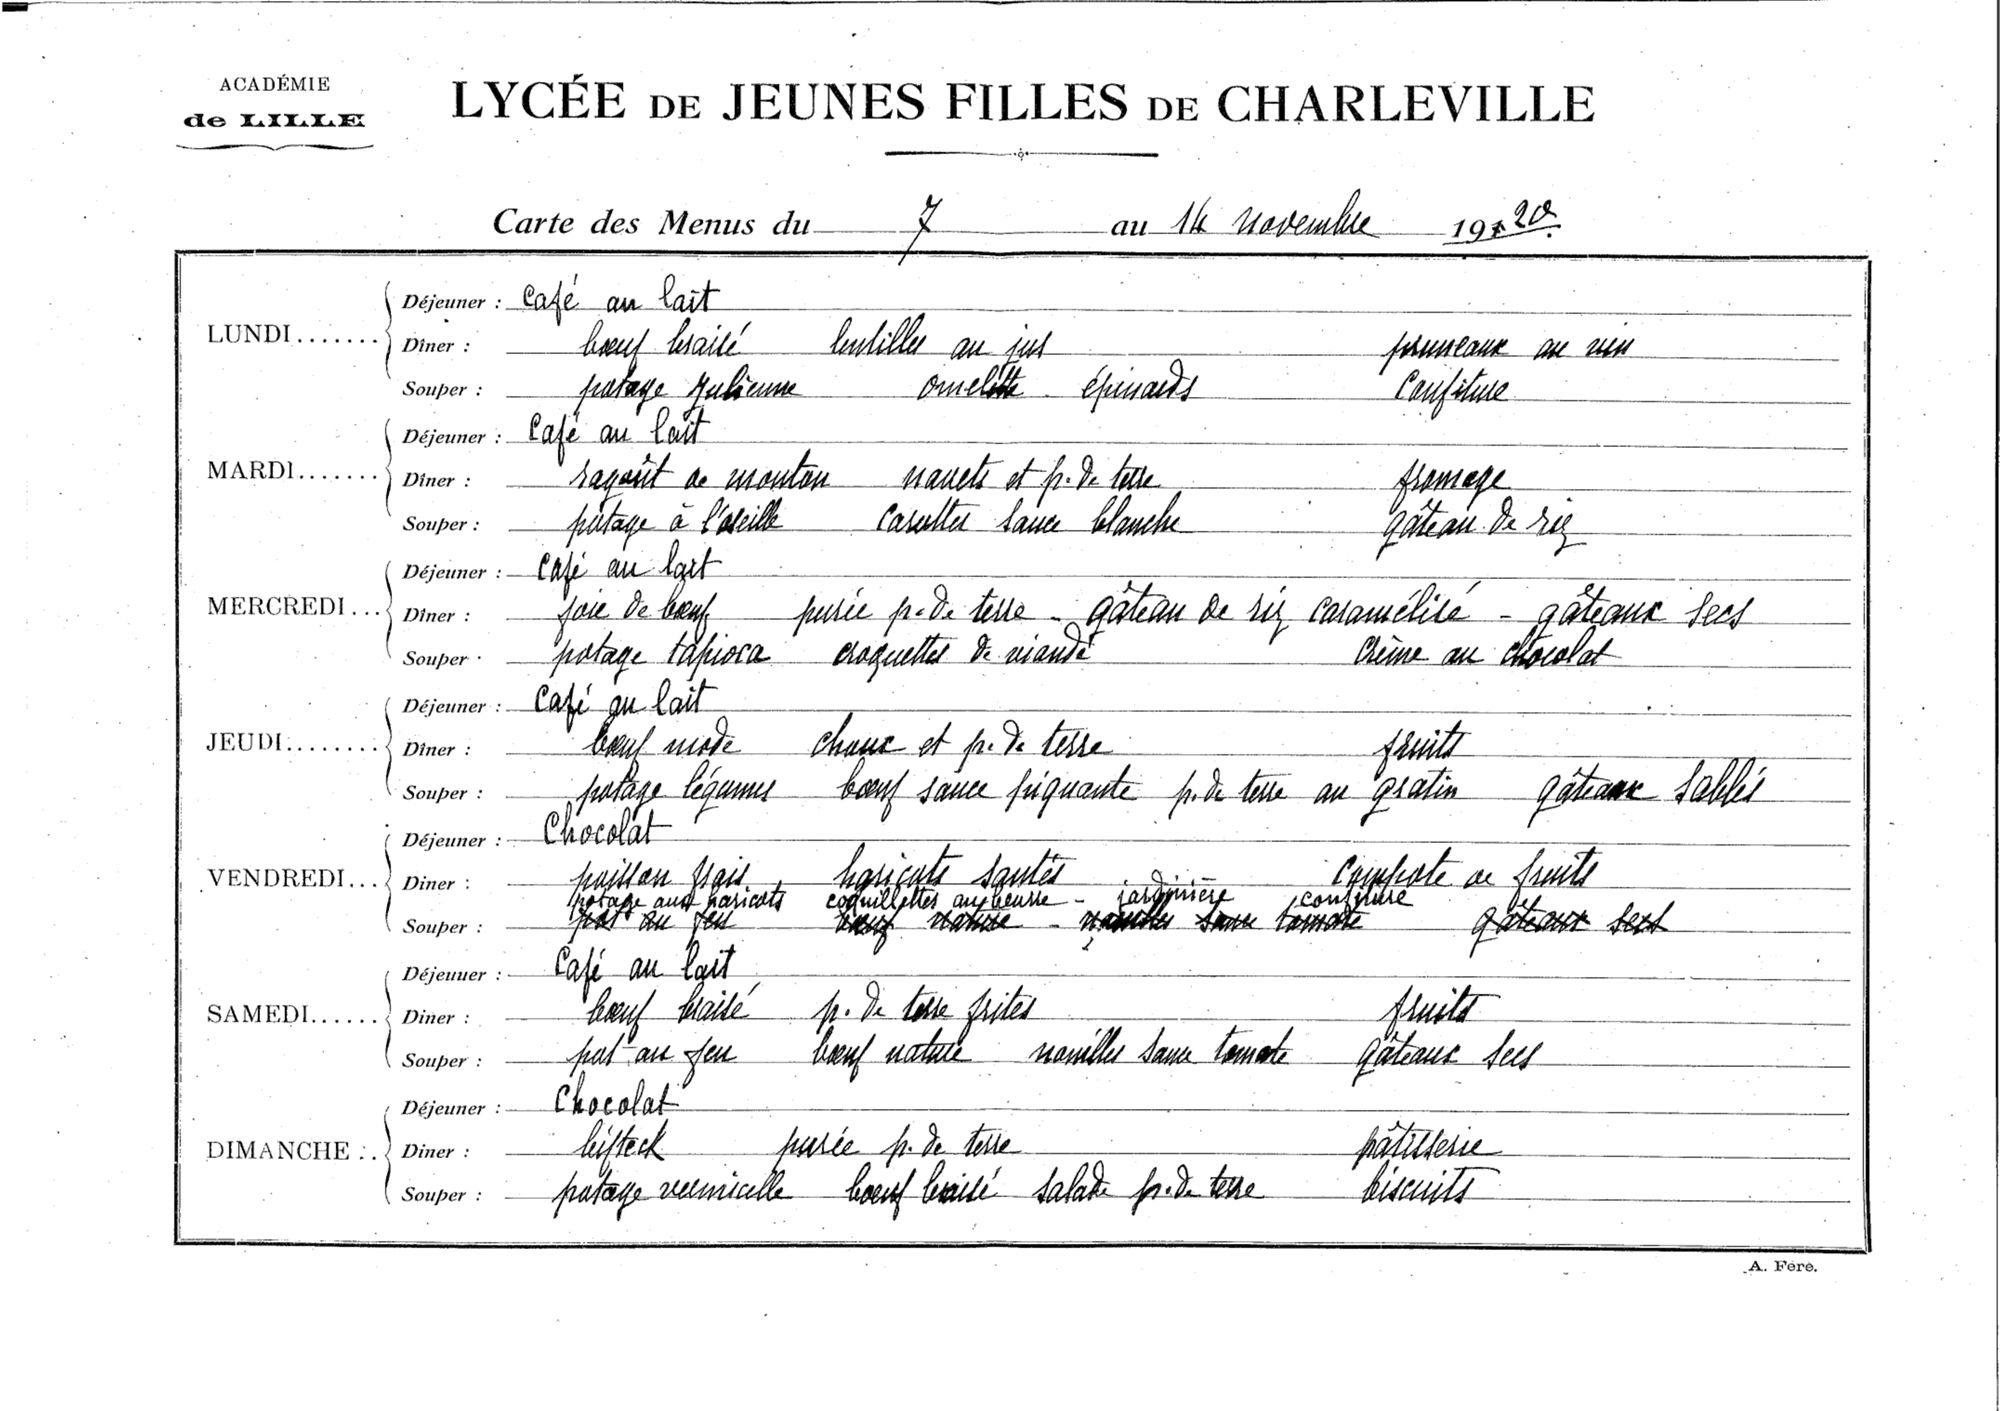 ACADÉMIE
de LILLE
LYCÉE DE JEUNES FILLES DE CHARLEVILLE
Carte des Menus du 7 au 14 novembre 1920.
LUNDI.......
Déjeuner : Café au lait
Dîner : bœuf braisé lentilles au jus pruneaux au vin
Souper : potage Julienne omelette épinards Confiture
MARDI.......
Déjeuner : Café au lait
Dîner : ragoût de mouton navets et p. de terre fromage
Souper : potage à l'oseille Carottes sauce blanche gâteau de riz
MERCREDI...
Déjeuner : Café au lait
Dîner : foie de bœuf purée p. de terre - gâteau de riz caramélisé - gâteaux secs
Souper : potage tapioca croquettes de viande Crème au chocolat
JEUDI........
Déjeuner : Café au lait
Dîner : bœuf mode choux et p. de terre fruits
Souper : potage légumes bœuf sauce piquante p. de terre au gratin gâteaux sablés
VENDREDI...
Déjeuner : Chocolat
Diner : poisson frais haricots sautés Compote de fruits
potage aux haricots coquillettes au beurre - jardinière confiture
Souper : pot au feu bœuf nature - nouilles sauce tomate gâteaux secs
SAMEDI......
Déjeuner : Café au lait
Diner : bœuf braisé p. de terre frites fruits
Souper : pot au feu bœuf nature nouilles sauce tomate gâteaux secs
DIMANCHE ...
Déjeuner : Chocolat
Diner : bifteck purée p. de terre pâtisserie
Souper : potage vermicelle bœuf braisé salade p. de terre biscuits
A. Féré.